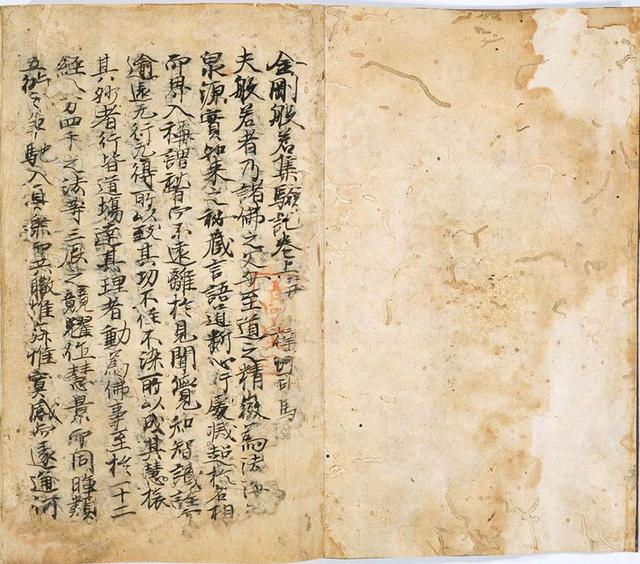 金剛般若集驗記卷上并 司馬
夫般若者乃諸佛之父母至道之精微為法海之
泉源實如來之秘藏言語道斷心行處滅超於名相
而界入稱謂暫而不遠離於見聞覺知智識詮
逾遠无行无得所以致其功不住不染所以成其慧
其妙者行皆道場率其理者動為佛事至於十二
經八万四千之法等三辰之競耀 慧景而同暉類
五 之 馳入真乘而共 惟 惟 感而遂通河